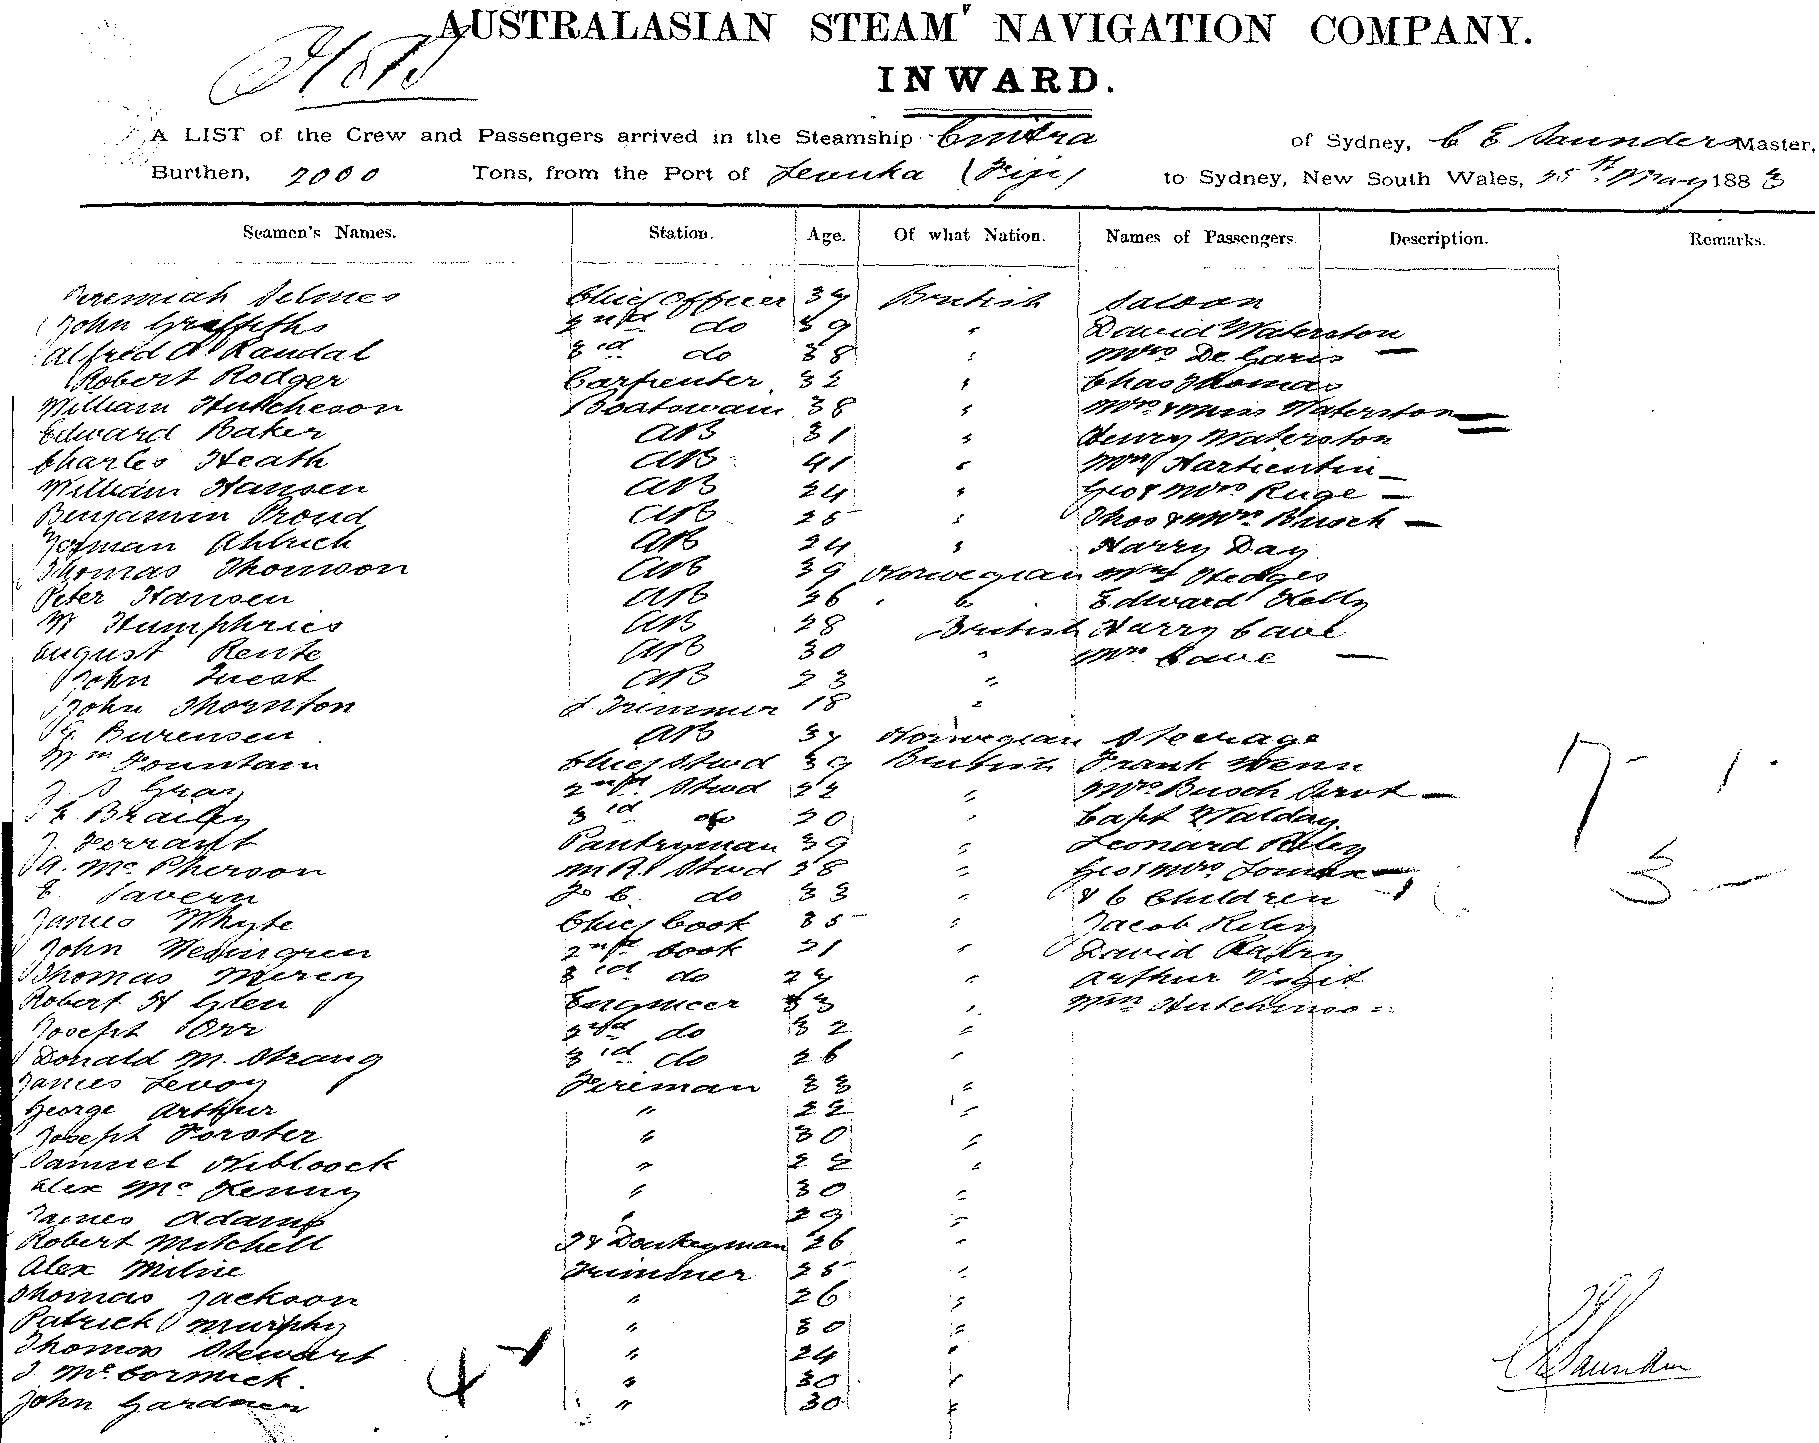 AUSTRALASIAN STEAM NAVIGATION COMPANY.
INWARD.
A LIST of the Crew and Passengers arrived in the Steamship Cintra of Sydney, C E Saunders Master,
Burthen, 2000 Tons, from the Port of Levuka (Fiji) to Sydney, New South Wales, 25th May 1883
Seamen's Names. Station. Age. Of what Nation. Names of Passengers. Description. Remarks.
Jeremiah Selmes Chief Officer British Saloon
John Griffiths 2nd do 39 " David Waterston
Alfred A Randal 3rd do 38 " Mrs De Garis —
Robert Rodger Carpenter 32 " Chas Thomas
William Hutcheson Boatswain 38 " Mrs & Miss Waterston —
Edward Baker AB 31 " Henry Waterston
Charles Heath AB 41 " Hartientin —
William Hansen AB 24 " Geo & Mrs Ruge —
Benjamin Proud AB 25 " Thos & Mrs Busch —
Ahlrich AB 24 " Harry Day
Thomas Thomson AB 39 Norwegian Hedges
Peter Hansen AB 26 " Edward Kelly
W Humphries AB 28 British Harry Cave
August Rente AB 30 " Mrs Cave —
John Guest AB 23 "
John Thornton Trimmer 18 "
Burensen AB Norwegian Steerage
Wm Fountain Chief Stwd 39 British Frank Wenn
Gray 2nd Stwd 22 " Mrs Busch Servt —
Brailey 3rd do 20 " Capt Walday
J. Ferrant Pantryman 39 " Leonard Riley
A. McPherson M.R. Stwd 38 " Geo & Mrs Lomax —
E Savern F. C. do 33 " & 6 Children
James Whyte Chief Cook 35 " Jacob Riley
John Wenngren 2nd Cook 21 " David
Thomas Mercy 3rd do " Arthur Vogit
Robert H Glen Engineer " Hutchinson
Joseph Orr 2nd do 32 "
Donald M. Strang 3rd do 26 "
James Levoy Fireman 33 "
George Arthur " 22 "
Joseph Forster " 30 "
Samuel Niblock " 22 "
Alex McKenny " 30 "
James Adams " 29 "
Robert Mitchell F & Donkeyman 26 "
Alex Milne Trimmer 25 "
Thomas Jackson " 26 "
Patrick Murphy " 30 "
Thomas Stewart " 24 "
J McCormick. " 30 "
John Gardner " 30 "
C E Saunders